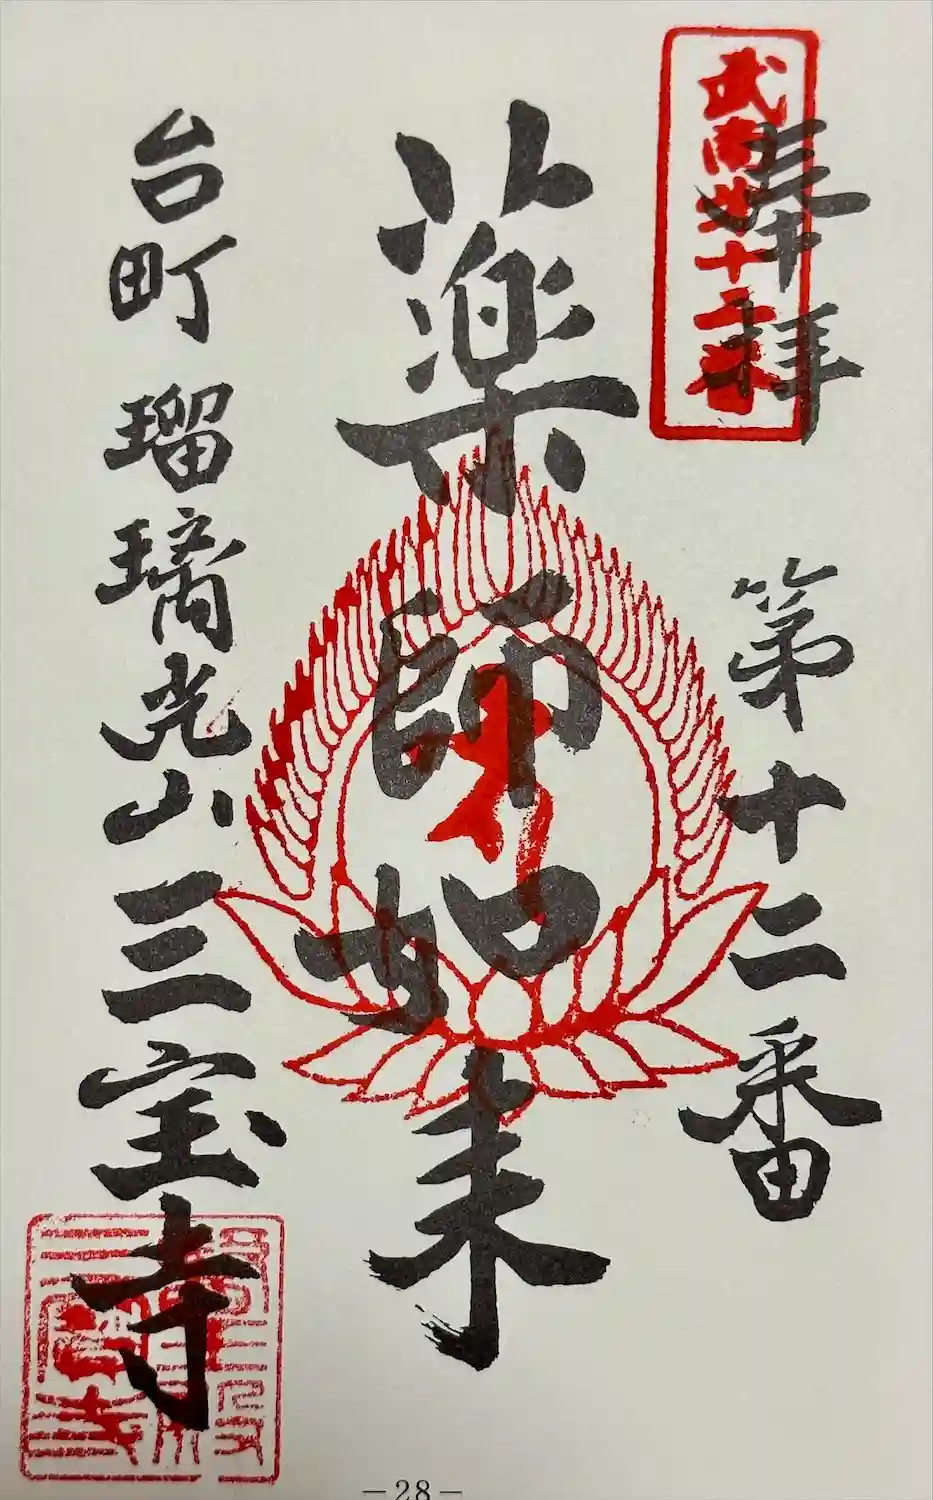 奉拝 第十二番
武南第十二番
薬師如来
台町 瑠璃光山三宝寺
－28－